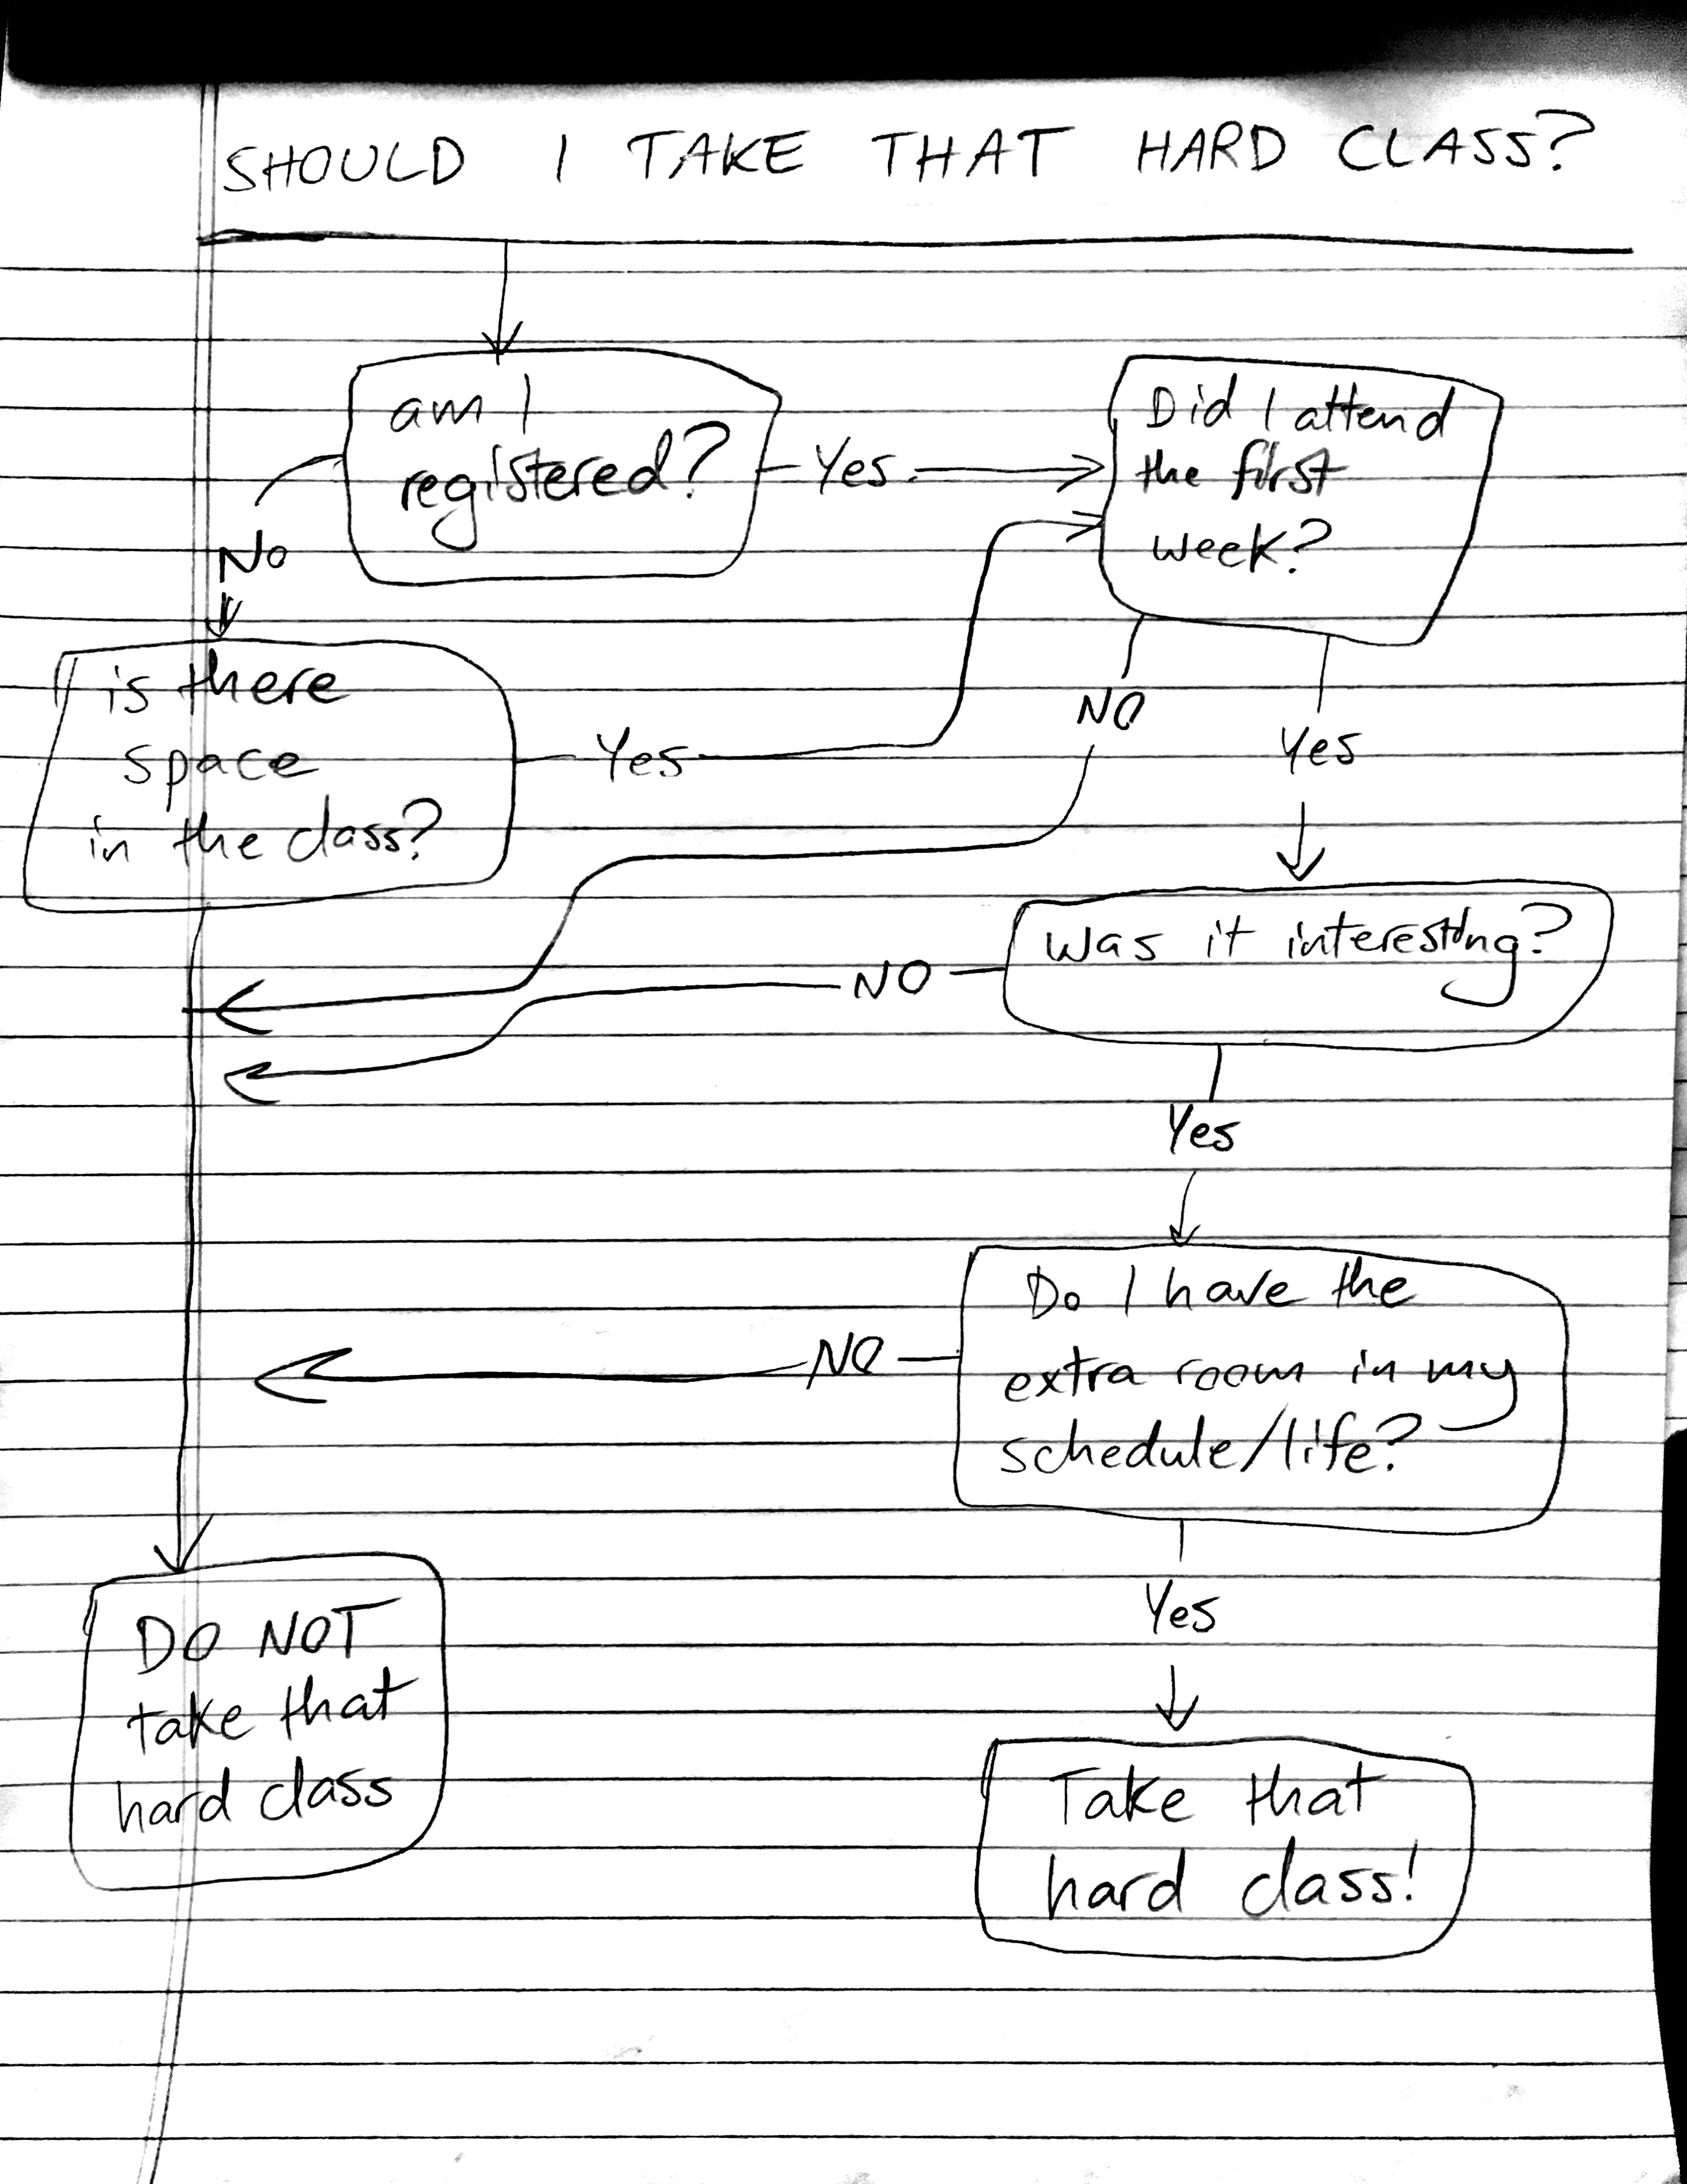 SHOULD I TAKE THAT HARD CLASS?
am I
registered?
Yes
Did I attend
the first
week?
No
is there
space
in the class?
Yes
NO
Yes
Was it interesting?
NO
Yes
Do I have the
extra room in my
schedule/life?
NO
Yes
DO NOT
take that
hard class
Take that
hard class!